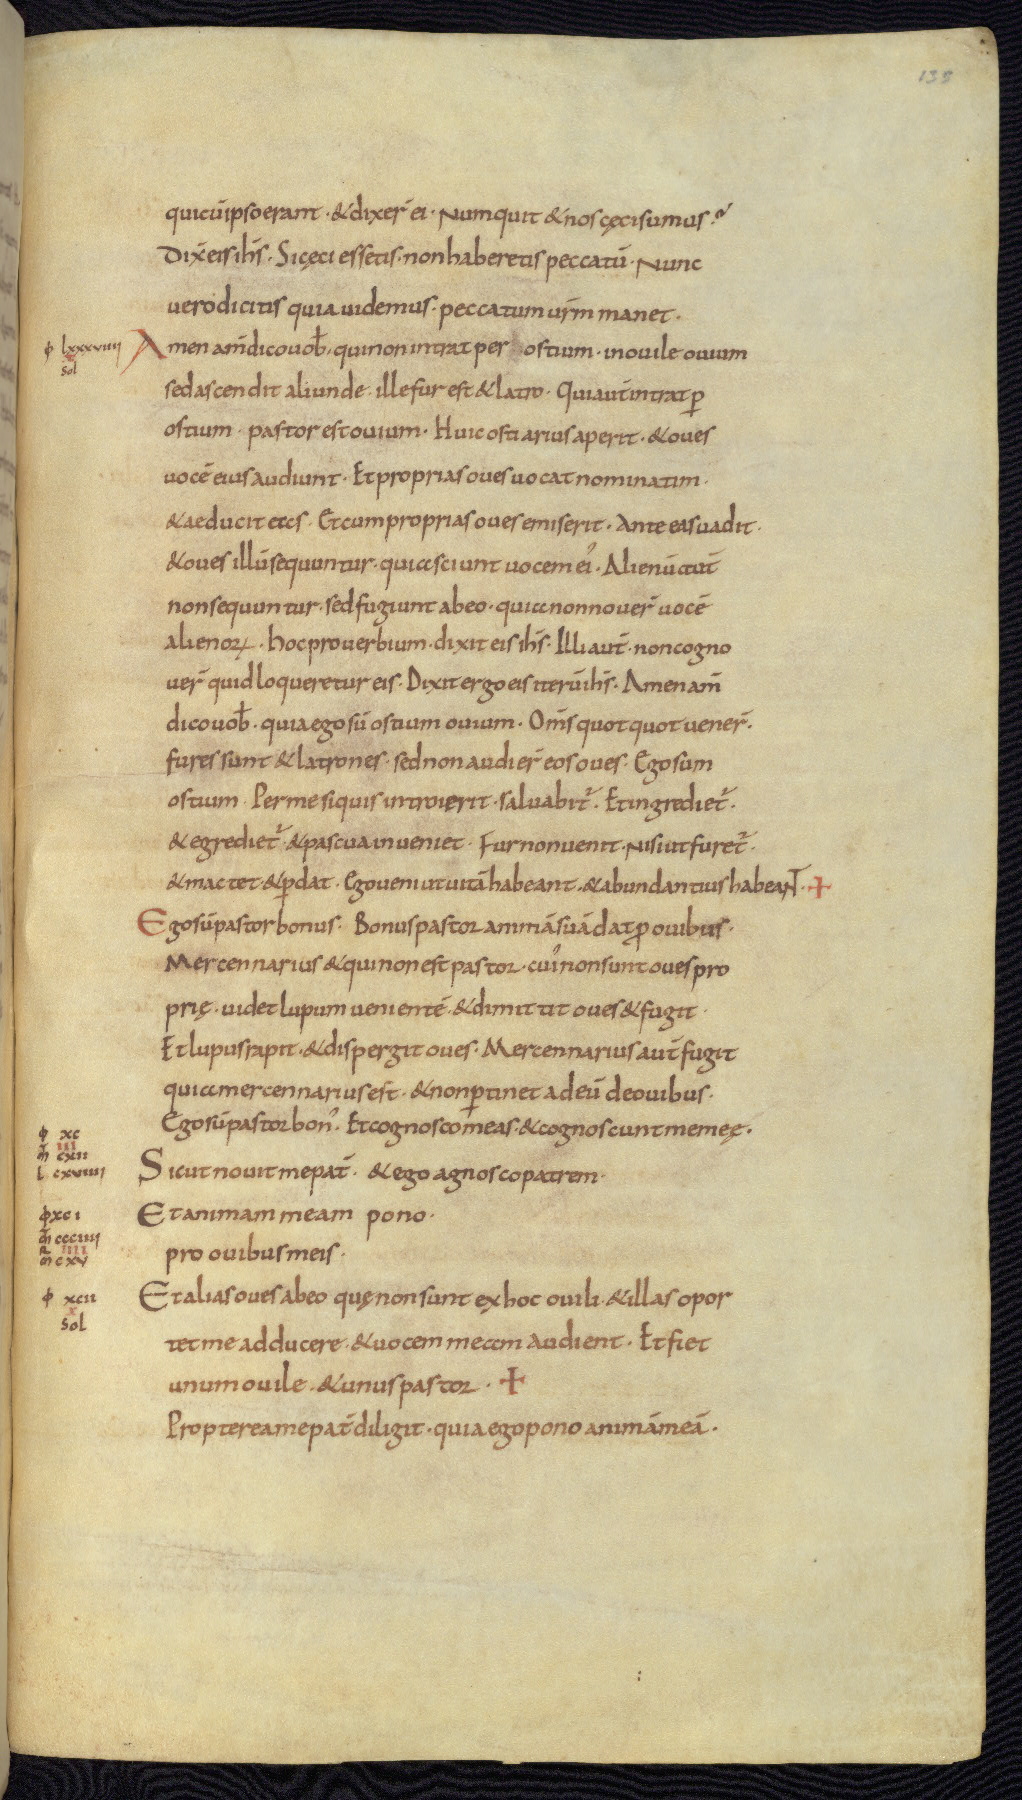 135
quicūipsoerant · &dixer̄ ei · Numquit &nos cęcisumus ?
Dix̄ eis ih̄s · Si cęci essetis · nonhaberetis peccatū · Nunc
vero dicitis quia videmus · peccatum ur̄m manet ·
ϕ lxxxviiii Amen am̄ dico vob̄ · quinon intrat per ostium · inovile ovium
x
sol
sed ascendit aliunde · ille fur est & latro · Qui aut̄ intrat ꝑ
ostium · pastor est ovium · Huic ostiarius aperit · & oves
vocē eius audiunt · Et proprias oves vocat nominatim ·
& aeducit eas · Et cum proprias oves emiserit · Ante eas vadit ·
& oves illū sequuntur · quia sciunt vocem ei᾿ · Alienū aut̄
non sequuntur · sed fugiunt abeo · quia non nover̄ vocē
alienoꝝ · hoc proverbium · dixit eis ih̄s · Illi aut̄ · non cogno
ver̄ quid loqueretur eis · Dixit ergo eis iterū ih̄s · Amen am̄
dico vob̄ · quia ego sū ostium ovium · Om̄s quotquot vener̄ ·
fures sunt & latrones · sed non audier̄ eos oves · Ego sum
ostium · Per me siquis introierit · salvabit᾿ · Et ingrediet᾿ ·
& egrediet᾿ · & pascua inveniet · Fur non venit · nisi ut furet᾿ ·
& mactet · & ꝑdat · Ego veni ut vitā habeant · & abundantius habeant · +
Ego sū pastor bonus · Bonus pastor animā suā dat ꝓ ovibus ·
Mercennarius & qui non est pastor · cui᾿ non sunt oves pro
prię · videt lupum venientē · & dimittit oves & fugit ·
Et lupus rapit · & dispergit oves · Mercennarius aut̄ fugit
quia mercennarius est · & non ꝑtinet ad eū de ovibus ·
Ego sū pastor bon᾿ · Et cognosco meas · & cognoscunt me męę ·
ϕ xc
iii
m̄ cxii
l cxviiii
Sicut novit me pat̄ · & ego agnosco patrem ·
ϕ xci Et animam meam pono ·
m̄ ccciiii
R iiii
m̄ cxv
pro ovibus meis ·
ϕ xcii Et alias oves abeo quę non sunt ex hoc ovili · & illas opor
x
sol
tet me adducere · & vocem meam audient · Et fiet
unum ovile · & unus pastor · +
Propterea me pat̄ diligit · quia ego pono animā meā ·